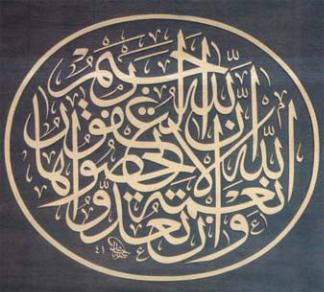 وإن تعدوا نعمة الله لا تحصوها إن الله لغفور رحيم